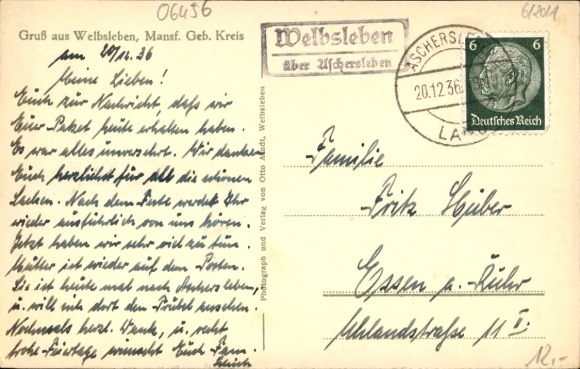 06456
6/2011
Gruß aus Welbsleben, Mansf. Geb. Kreis
am 20/12.36
Meine Lieben!
Euch zur Nachricht, daß wir
Euer Paket heute erhalten haben.
Es war alles unversehrt. Wir danken
Euch herzlichst für all die schönen
Sachen. Nach dem Feste werdet Ihr
wieder ausführlich von uns hören.
Jetzt haben wir sehr viel zu tun.
Mutter ist wieder auf dem Posten.
Sie ist heute mal nach Aschersleben,
u. will sich dort den Trubel ansehen.
Nochmals herzl. Dank, u. recht
frohe Feiertage wünscht Euch Fam.
Photograph und Verlag von Otto Arndt, Welbsleben
Welbsleben
über Aschersleben
ASCHERSLEBEN
20.12.36
LAND
6 6
Deutsches Reich
Familie
Fritz Huber
Essen a. Ruhr
Uhlandstraße 11 II.
12,-